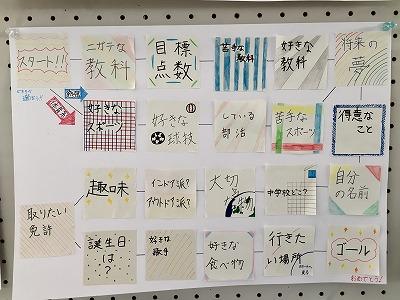 スタート!!
ニガテな
教科
目標
点数
苦手な
教科
好きな
教科
将来の
夢
好きな
スポーツ
好きな
球技
している
部活
苦手な
スポーツ
得意な
こと
趣味
インドア派?
アウトドア派?
大切な
中学校どこ?
自分
の名前
取りたい
免許
誕生日
は?
好きな
歌手
好きな
食べ物
行きた
い場所
ゴール
おめでとう!